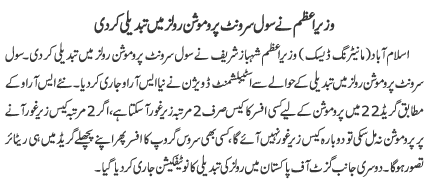 وزیراعظم نے سول سرونٹ پروموشن رولز میں تبدیلی کردی
اسلام آباد (مانیٹرنگ ڈیسک) وزیراعظم شہباز شریف نے سول سرونٹ پروموشن رولز میں تبدیلی کردی۔ سول
سرونٹ پروموشن رولز میں تبدیلی کے حوالے سے اسٹیبلشمنٹ ڈویژن نے نیا ایس آر او جاری کر دیا۔ نئے ایس آر او کے
مطابق گریڈ 22 میں پروموشن کے لیے کسی افسر کا کیس صرف 2 مرتبہ زیر غور آسکتا ہے، اگر 2 مرتبہ کیس زیر غور آنے
پر پروموشن نہ مل سکی تو دوبارہ کیس زیر غور نہیں آئے گا، کسی بھی سروس گروپ کا افسر پھر اپنے پچھلے گریڈ میں ہی ریٹائر
تصور ہوگا۔ دوسری جانب گزٹ آف پاکستان میں رولز کی تبدیلی کا نوٹیفکیشن جاری کر دیا گیا۔